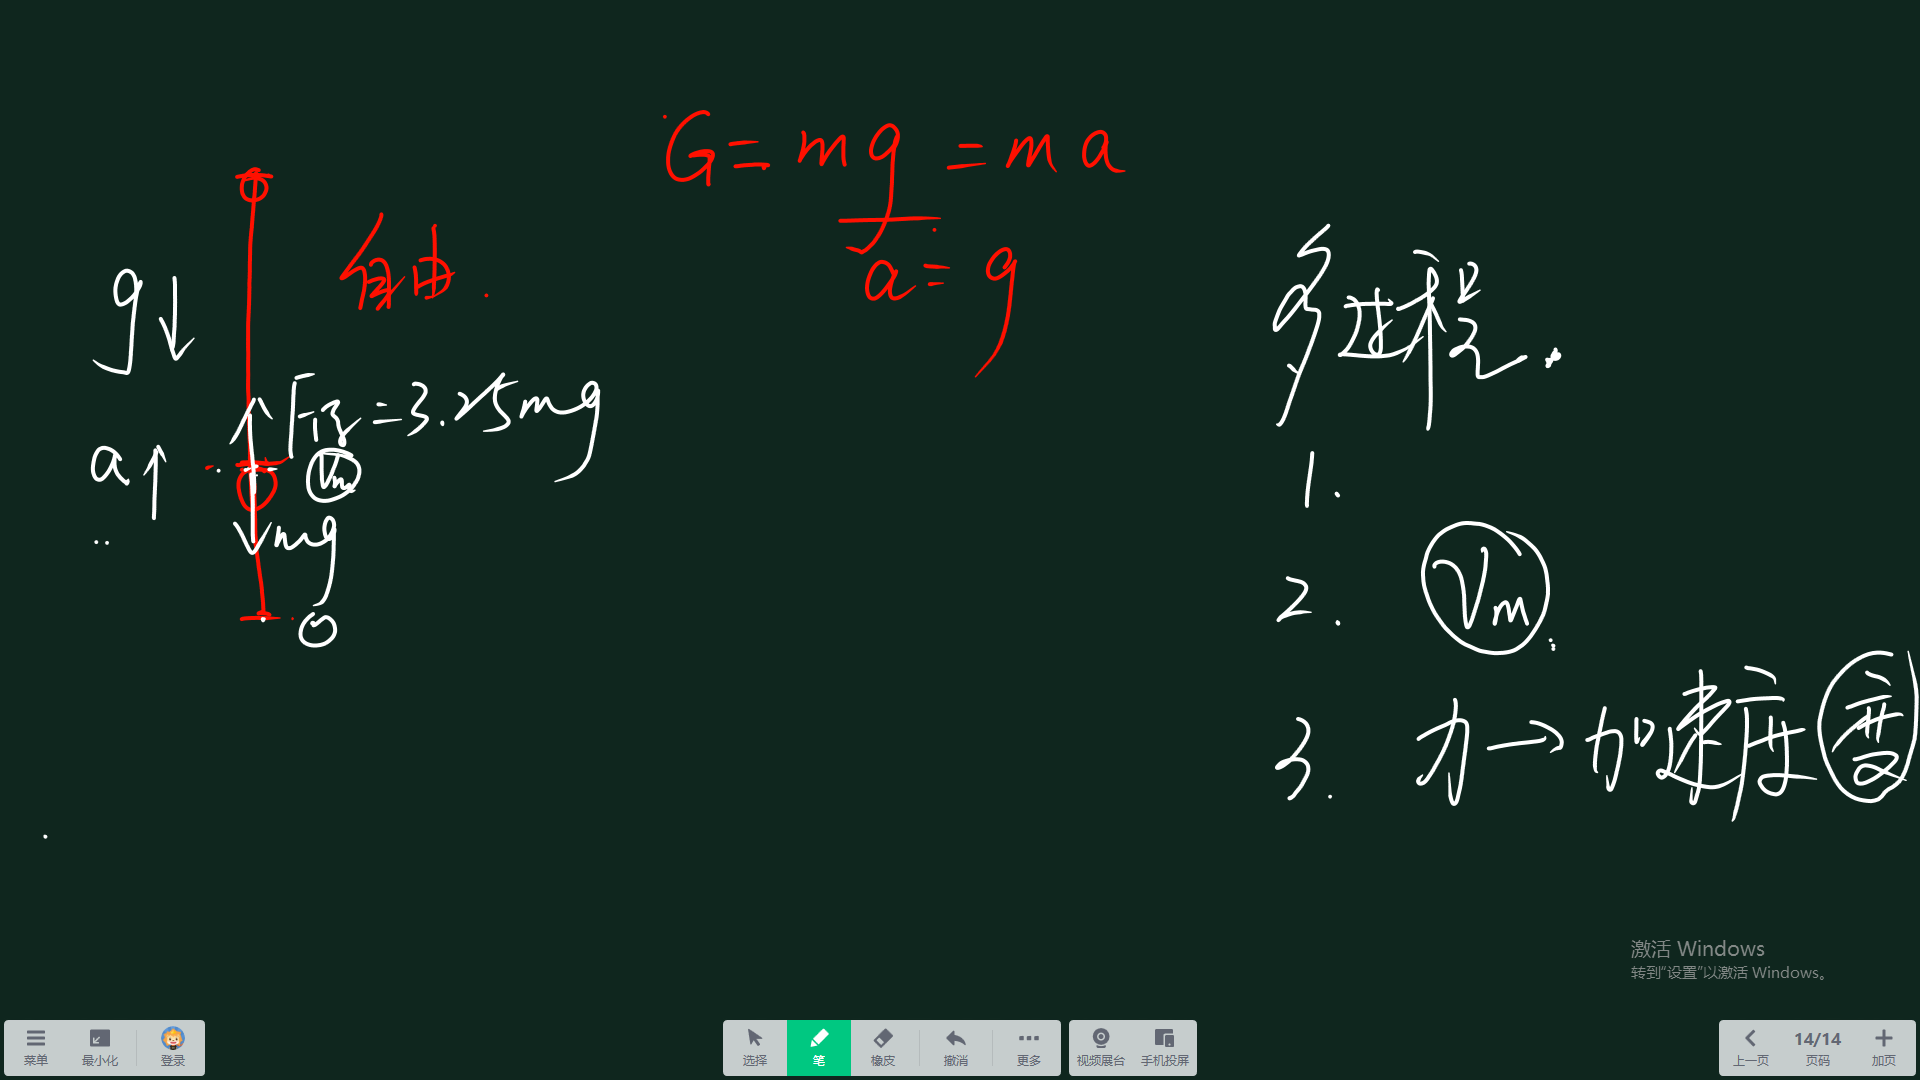 G=mg=ma
a=g
自由.
g↓
F浮=3.25mg
a↑
Vm
mg
0
多过程.
1.
2. Vm
3. 力→加速度变
激活 Windows
转到“设置”以激活 Windows。
菜单 最小化 登录 选择 笔 橡皮 撤消 更多 视频展台 手机投屏 上一页 14/14 页码 加页